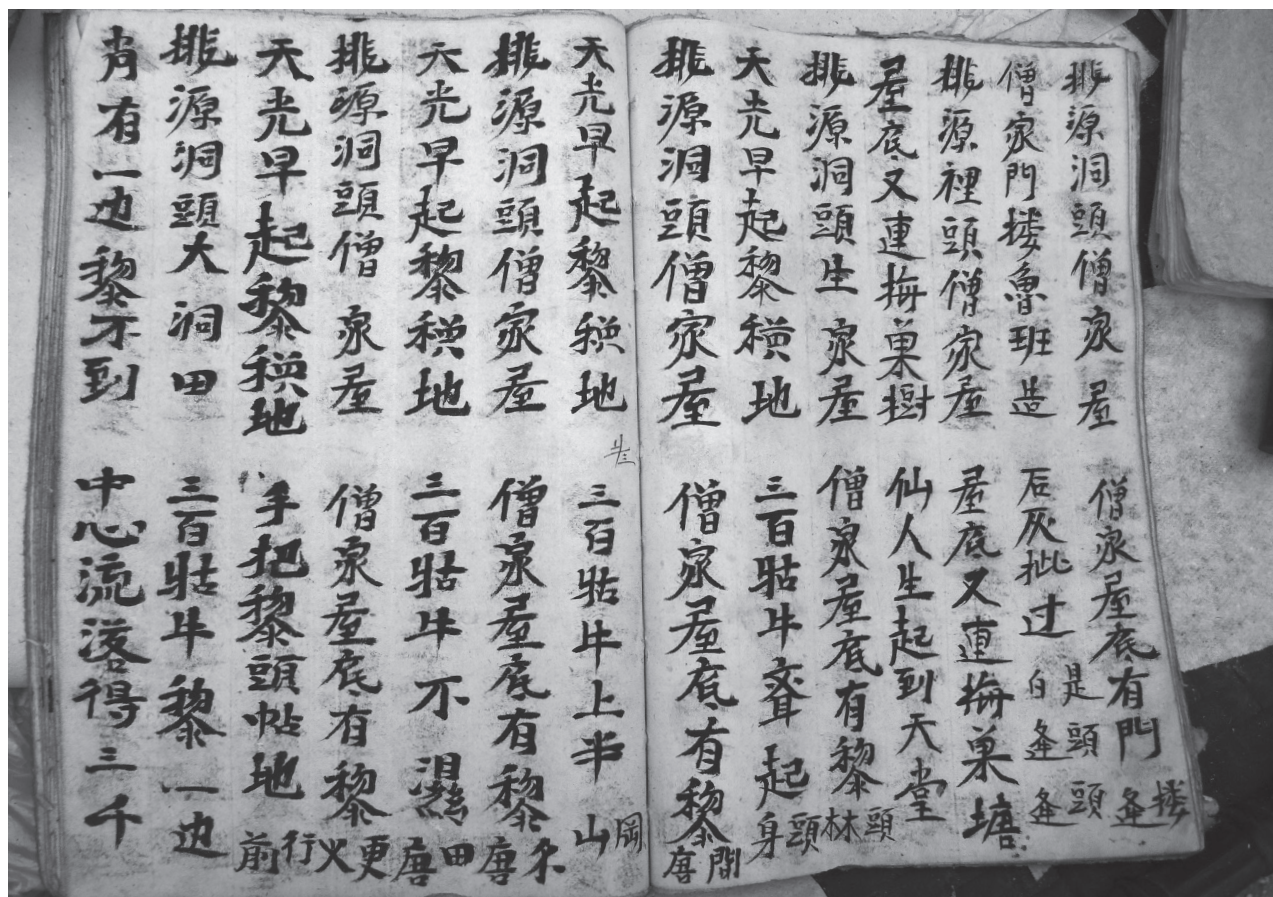 挑源洞頭僧家屋 僧家屋底有門楼
僧家門楼魯班造 石灰批过白逢逢
挑源裡頭僧家屋 屋底又連梅菓塘
屋底又連梅菓樹 仙人生起到天堂
挑源洞頭生家屋 僧家屋底有黎林頭
天光早起黎地 三百牯牛齊起身頭
挑源洞頭僧家屋 僧家屋底有黎唐間
天光早起黎地 三百牯牛上半山岡
挑源洞頭僧家屋 僧家屋底有黎唐禾
天光早起黎地 三百牯牛不濕唐田
挑源洞頭僧家屋 僧家屋底有黎火更
天光早起黎地 手把黎頭帖地前行
挑源洞頭大洞田 三百牯牛黎一边
肖有一边黎不到 中心流落得三千